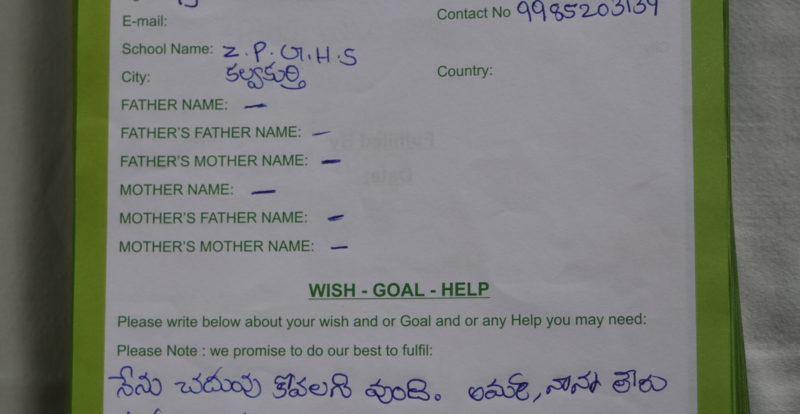 E-mail:
Contact No 9985203139
School Name: Z.P.G.H.S
City: కల్వకుర్తి
Country:
FATHER NAME: —
FATHER'S FATHER NAME: —
FATHER'S MOTHER NAME: —
MOTHER NAME: —
MOTHER'S FATHER NAME: —
MOTHER'S MOTHER NAME: —
WISH - GOAL - HELP
Please write below about your wish and or Goal and or any Help you may need:
Please Note : we promise to do our best to fulfil:
నేను చదువు కోవలని వుంది. అమ్మ, నాన్న లేరు